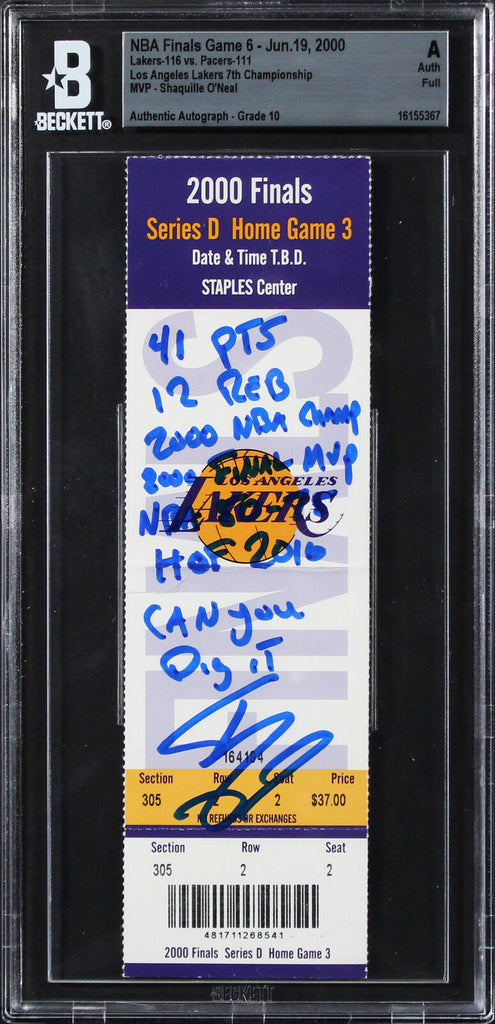 NBA Finals Game 6 - Jun.19, 2000
Lakers-116 vs. Pacers-111
Los Angeles Lakers 7th Championship
MVP - Shaquille O'Neal
Authentic Autograph - Grade 10
A
Auth
Full
16155367
BECKETT®
2000 Finals
Series D Home Game 3
Date & Time T.B.D.
STAPLES Center
FINALS
41 PTS
12 REB
2000 NBA Champ
2000 FINAL MVP
NBA 50
LOS ANGELES
LAKERS
HOF 2016
CAN you
Dig iT
164104
Section Row Seat Price
305 2 2 $37.00
NO REFUNDS OR EXCHANGES
Section Row Seat
305 2 2
481711268541
2000 Finals Series D Home Game 3
BECKETT